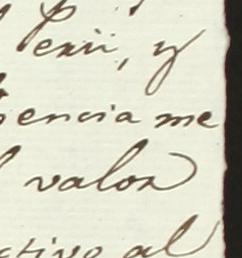 Perú, y
encia me
valor
ctivo al